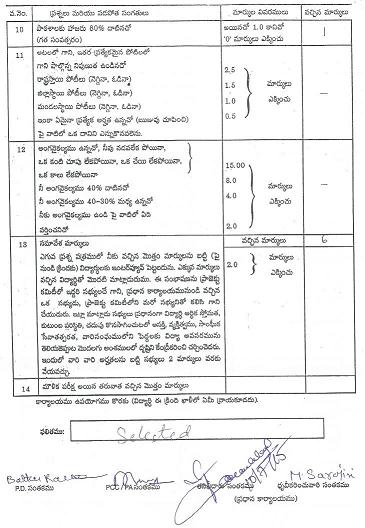 వ.నెం. ప్రశ్నలు మరియు పడవోత సంగతులు మార్కుల వివరములు వచ్చిన మార్కులు
10 పాఠశాలకు హాజరు 80% దాటినచో అయినచో 1.0 కానిచో 1
(గత సంవత్సరం) '0' మార్కులు ఎక్కించు
11 ఆటలలో గాని, ఇతర ప్రత్యేకమైన పోటీలలో
గాని పాల్గొన్న నిపుణుత ఉండినచో 2.5
రాష్ట్రస్థాయి పోటీలు (నెగ్గినా, ఓడినా) 1.5 మార్కులు
జిల్లాస్థాయి పోటీలు (నెగ్గినా, ఓడినా) 1.0 ఎక్కించు —
మండలస్థాయి పోటీలు (నెగ్గినా, ఓడినా) 0.5
ఇంకా ఏమైనా ప్రత్యేక అర్హత ఉన్నచో (ఋజువు చూపించి)
పై వాటిలో ఒక దానిని ఎన్నుకొనవలెను.
12 అంగవైకల్యము ఉన్నచో, నీవు నడవలేక పోయినా,
ఒక కంటి చూపు లేకపోయినా, ఒక చేయి లేకపోయినా, 15.00
ఒక కాలు లేకపోయినా 8.0
నీ అంగవైకల్యము 40% దాటినచో మార్కులు —
నీ అంగవైకల్యము 40-30% మధ్య ఉన్నచో 4.0 ఎక్కించు
నీకు అంగవైకల్యము ఉండి పై వాటిలో ఏది
వర్తించనిచో 2.0
13 సమావేశ మార్కులు వచ్చిన మార్కులు 6
ఎగువ ప్రశ్న పత్రములో నీకు వచ్చిన మొత్తం మార్కులను బట్టి (పై
నుండి క్రిందకు) విద్యార్థులకు ఇంటర్వ్యూవ్ పెట్టబడును. ఎక్కువ మార్కులు 2.0 మార్కులు
వచ్చిన విద్యార్థితో మొదటి మాట్లాడుదురు. ఈ సంభాషణను ప్రాజెక్టు ఎక్కించు —
కమిటీలో ఇద్దరి సభ్యులచే గాని, ప్రధాన కార్యాలయమునుండి వచ్చిన
ఒక సభ్యుడు, ప్రాజెక్టు కమిటీలోని మరో సభ్యునితో కలిసి గాని
చేయుదురు. ఇట్లా మాట్లాడు సభ్యులు ప్రధానంగా విద్యార్థి ఆర్థిక స్తోమత,
కుటుంబ పరిస్థితి, చదువు కొనసాగించుటలో ఆసక్తి, వ్యక్తిత్వము, సాంఘీక
సేవాతత్పరత,
ఇందులో వారి వారి అర్హతలను బట్టి సభ్యులు 2 మార్కులు వరకు
వేయవచ్చు.
14 మౌఖిక పరీక్ష అయిన తరువాత వచ్చిన మొత్తం మార్కులు
కార్యాలయము ఉపయోగము కొరకు (విద్యార్థి ఈ క్రింది ఖాళీలో ఏమీ వ్రాయకూడదు).
ఫలితము: Selected
10/7/15
M. Sarojini
P.D. సంతకము PCC / PA సంతకము సంతకము ధృవీకరించువారి సంతకము
(ప్రధాన కార్యాలయము)